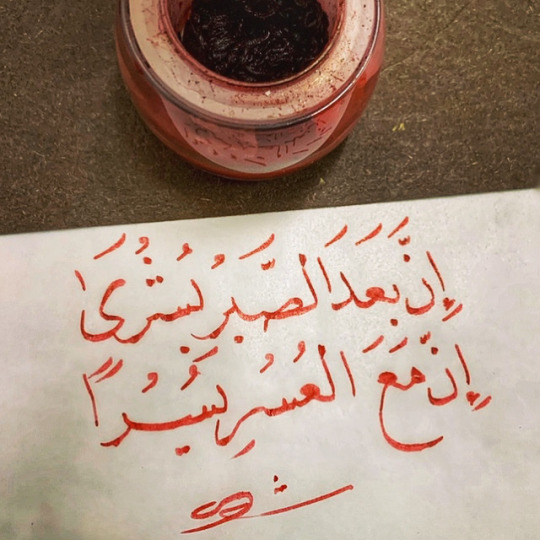 إِنَّ بَعدَ الصَّبرِ بُشْرَى
إِنَّ مَعَ العُسُرِ يُسْرًا